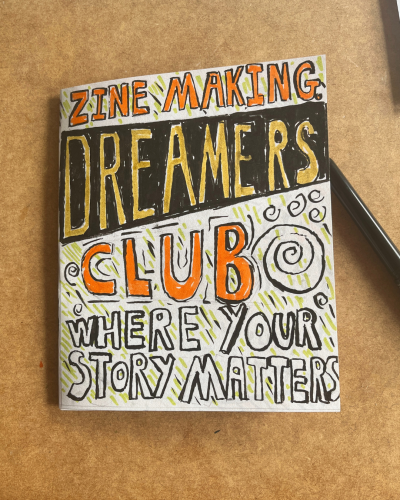 ZINE MAKING
DREAMERS
CLUB
WHERE YOUR
STORY MATTERS